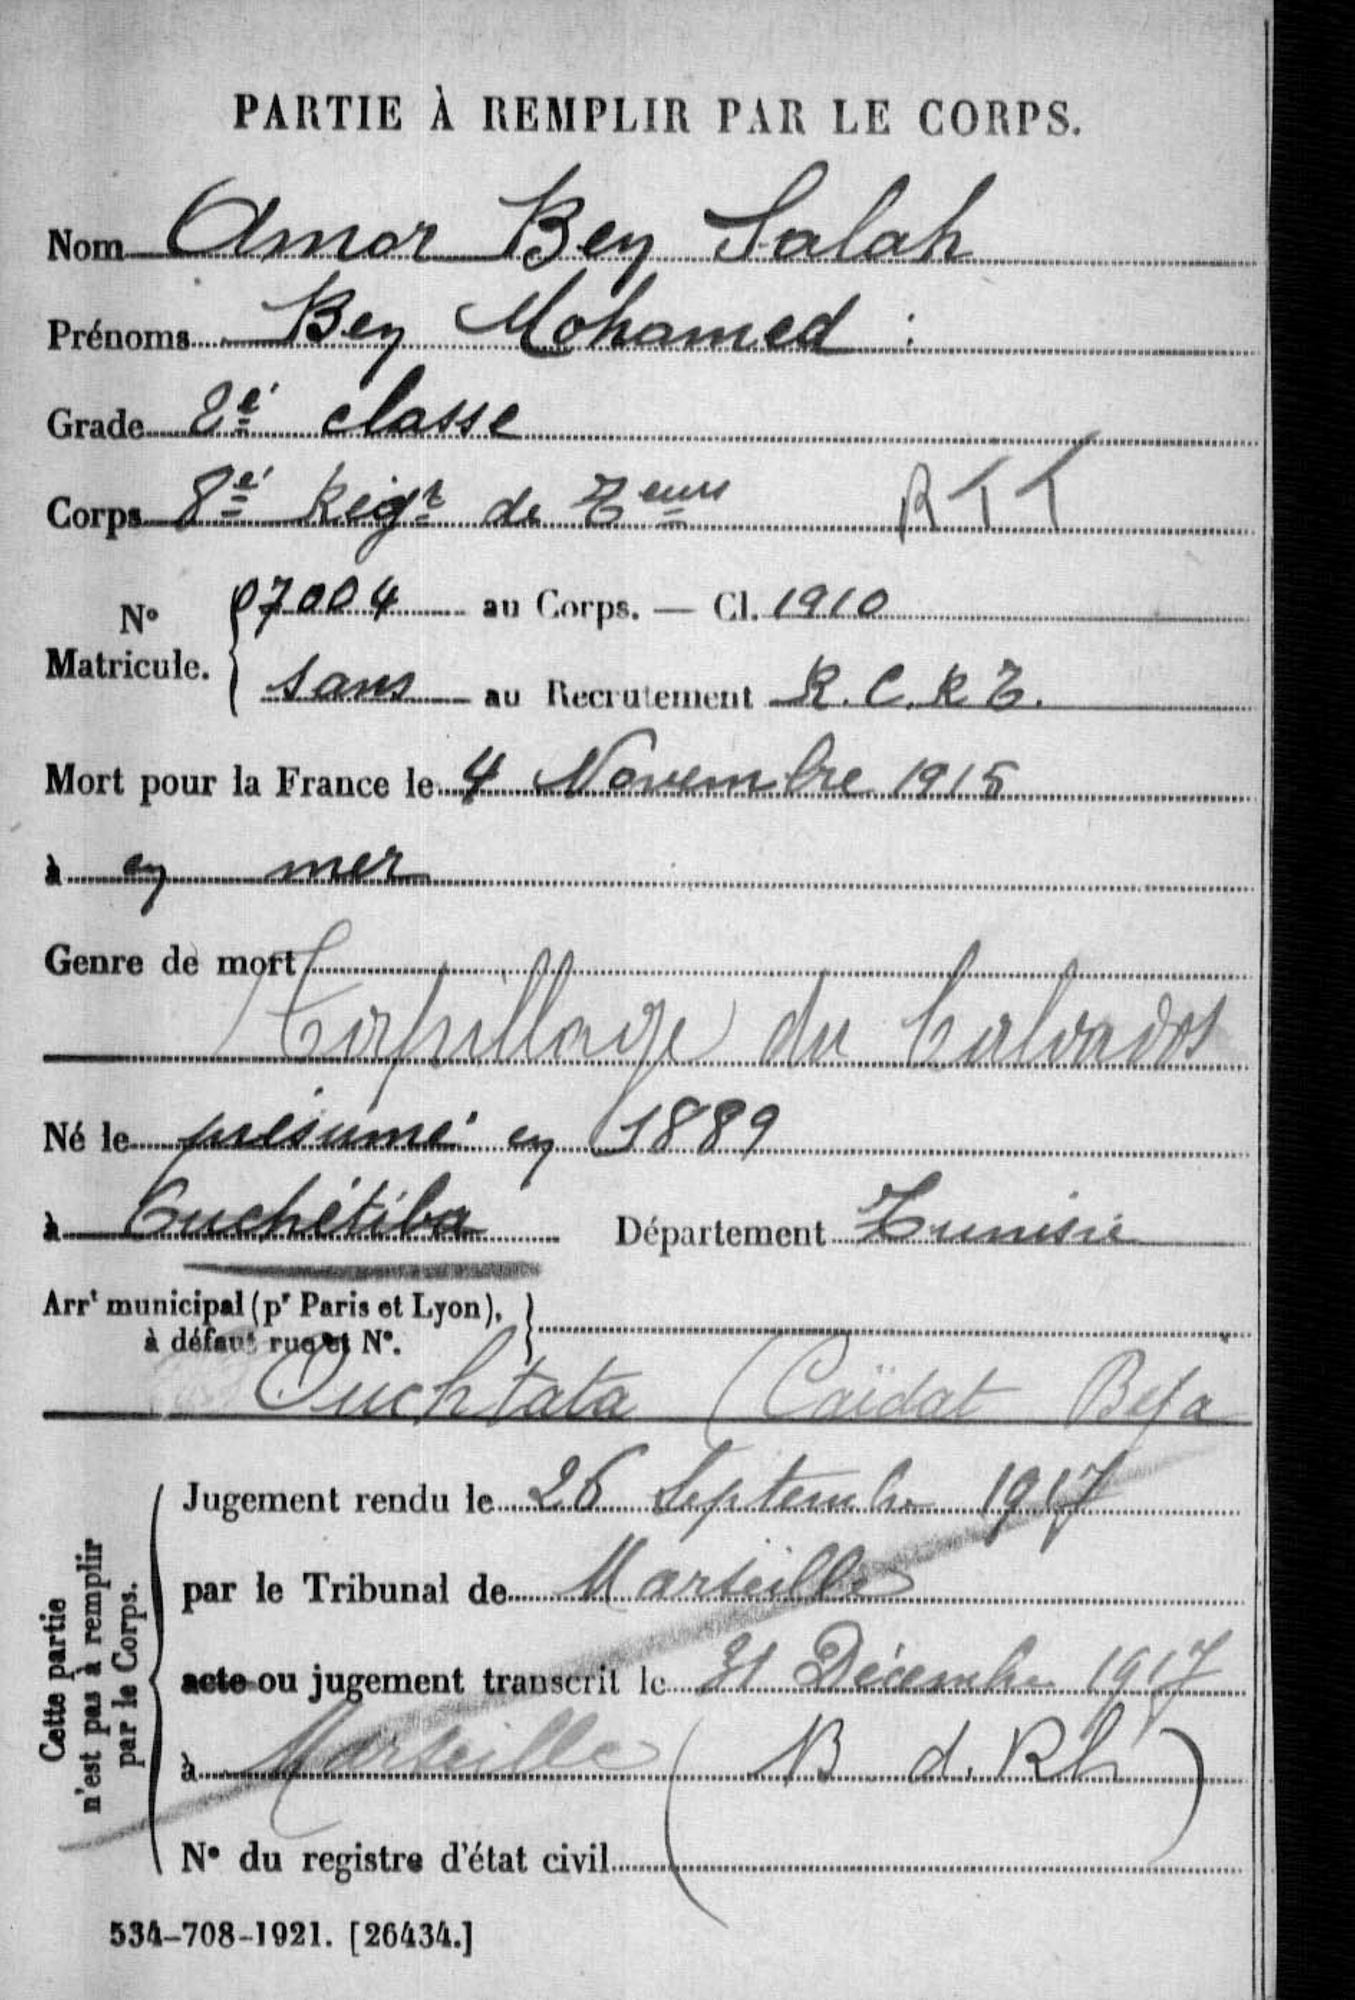 PARTIE À REMPLIR PAR LE CORPS.
Nom Amor Ben Salah
Prénoms Ben Mohamed :
Grade 2e classe
Corps 8e Régt de Teurs RTT
No Matricule. 07004 au Corps. — Cl. 1910
sans au Recrutement R. C. R T.
Mort pour la France le 4 Novembre 1915
à en mer
Genre de mort
Torpillage du Calvados
Né le présumé en 1889
à Cuchétiba Département Tunisie
Arrt municipal (pr Paris et Lyon),
à défaut rue et No.
Ouchtata (Caïdat Beja
Cette partie n'est pas à remplir par le Corps.
Jugement rendu le 26 Septembre 1917
par le Tribunal de Marseille
acte ou jugement transcrit le 31 Décembre 1917
à Marseille (B d. Rh)
No du registre d'état civil
534-708-1921. [26434.]